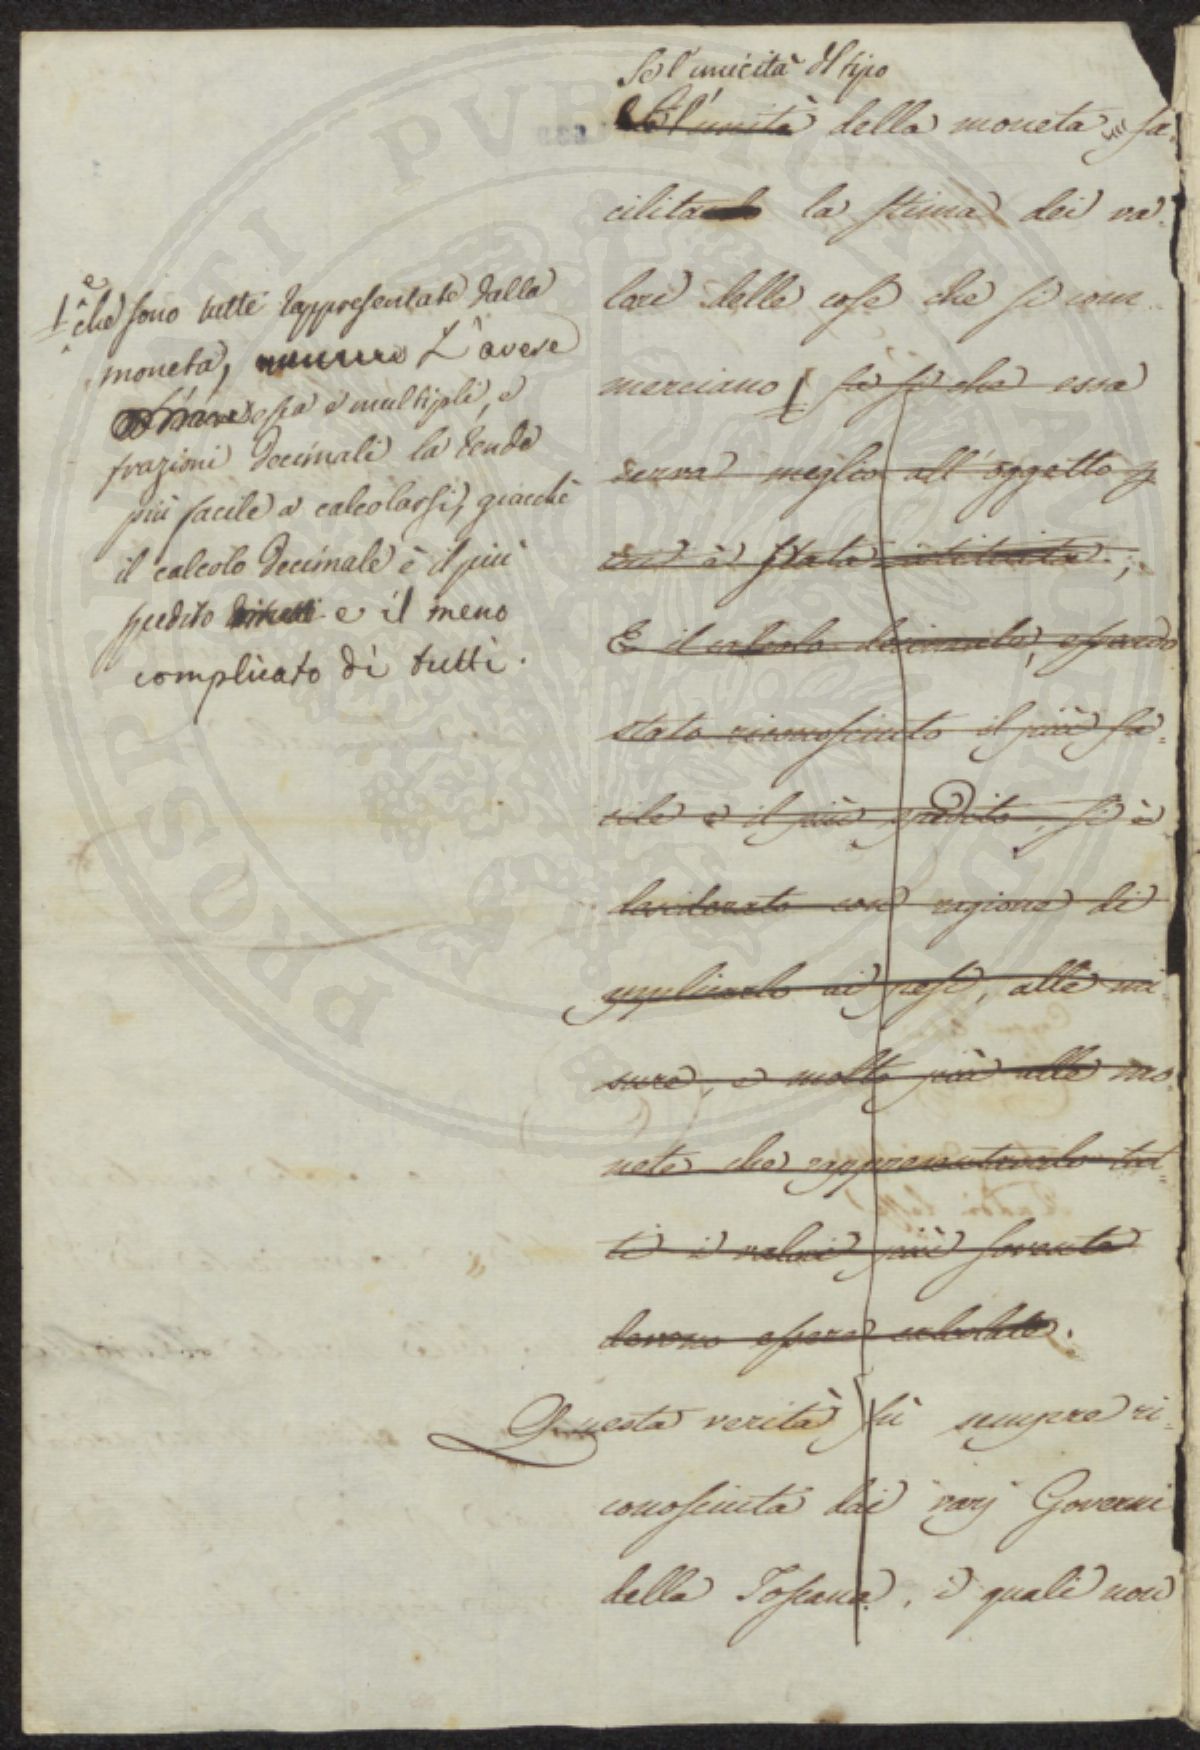 Se l'unicità del tipo
Se l'unità della moneta fa
cilitando la stima dei va
lori delle cose che si com
merciano fà sì che essa
serva meglio all'oggetto p
cui è stata istituita;
E il calcolo decimale, essendo
stato riconosciuto il più fa=
cile e il più spedito, si è
desiderato con ragione di
applicarlo ai pesi, alle mi
sure, e molto più alle mo
nete che rappresentando tut=
ti i valori più sovente
devono essere calcolate.
Questa verità fù sempre ri=
conosciuta dai varj Governi
della Toscana, i quali non
e
che sono tutte rappresentate dalla
moneta, L'avere
essa e multipli, e
frazioni decimali la rende
più facile a calcolarsi, giacchè
il calcolo decimale è il più
spedito e il meno
complicato di tutti.
PROSPERITATI PVBLICAE AVGENDAE